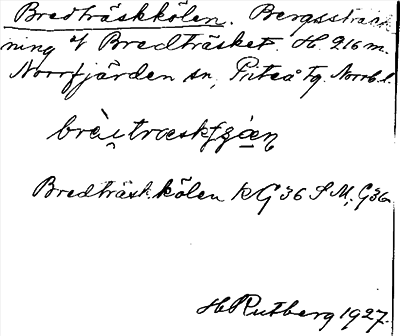 Bredträskkölen. Bergssträck-
ning v Bredträsket. H. 216 m.
Norrfjärden sn, Piteå tg. Norrb. l.
Bredträskkölen KG 36 S M, G 36
H Rutberg 1927.